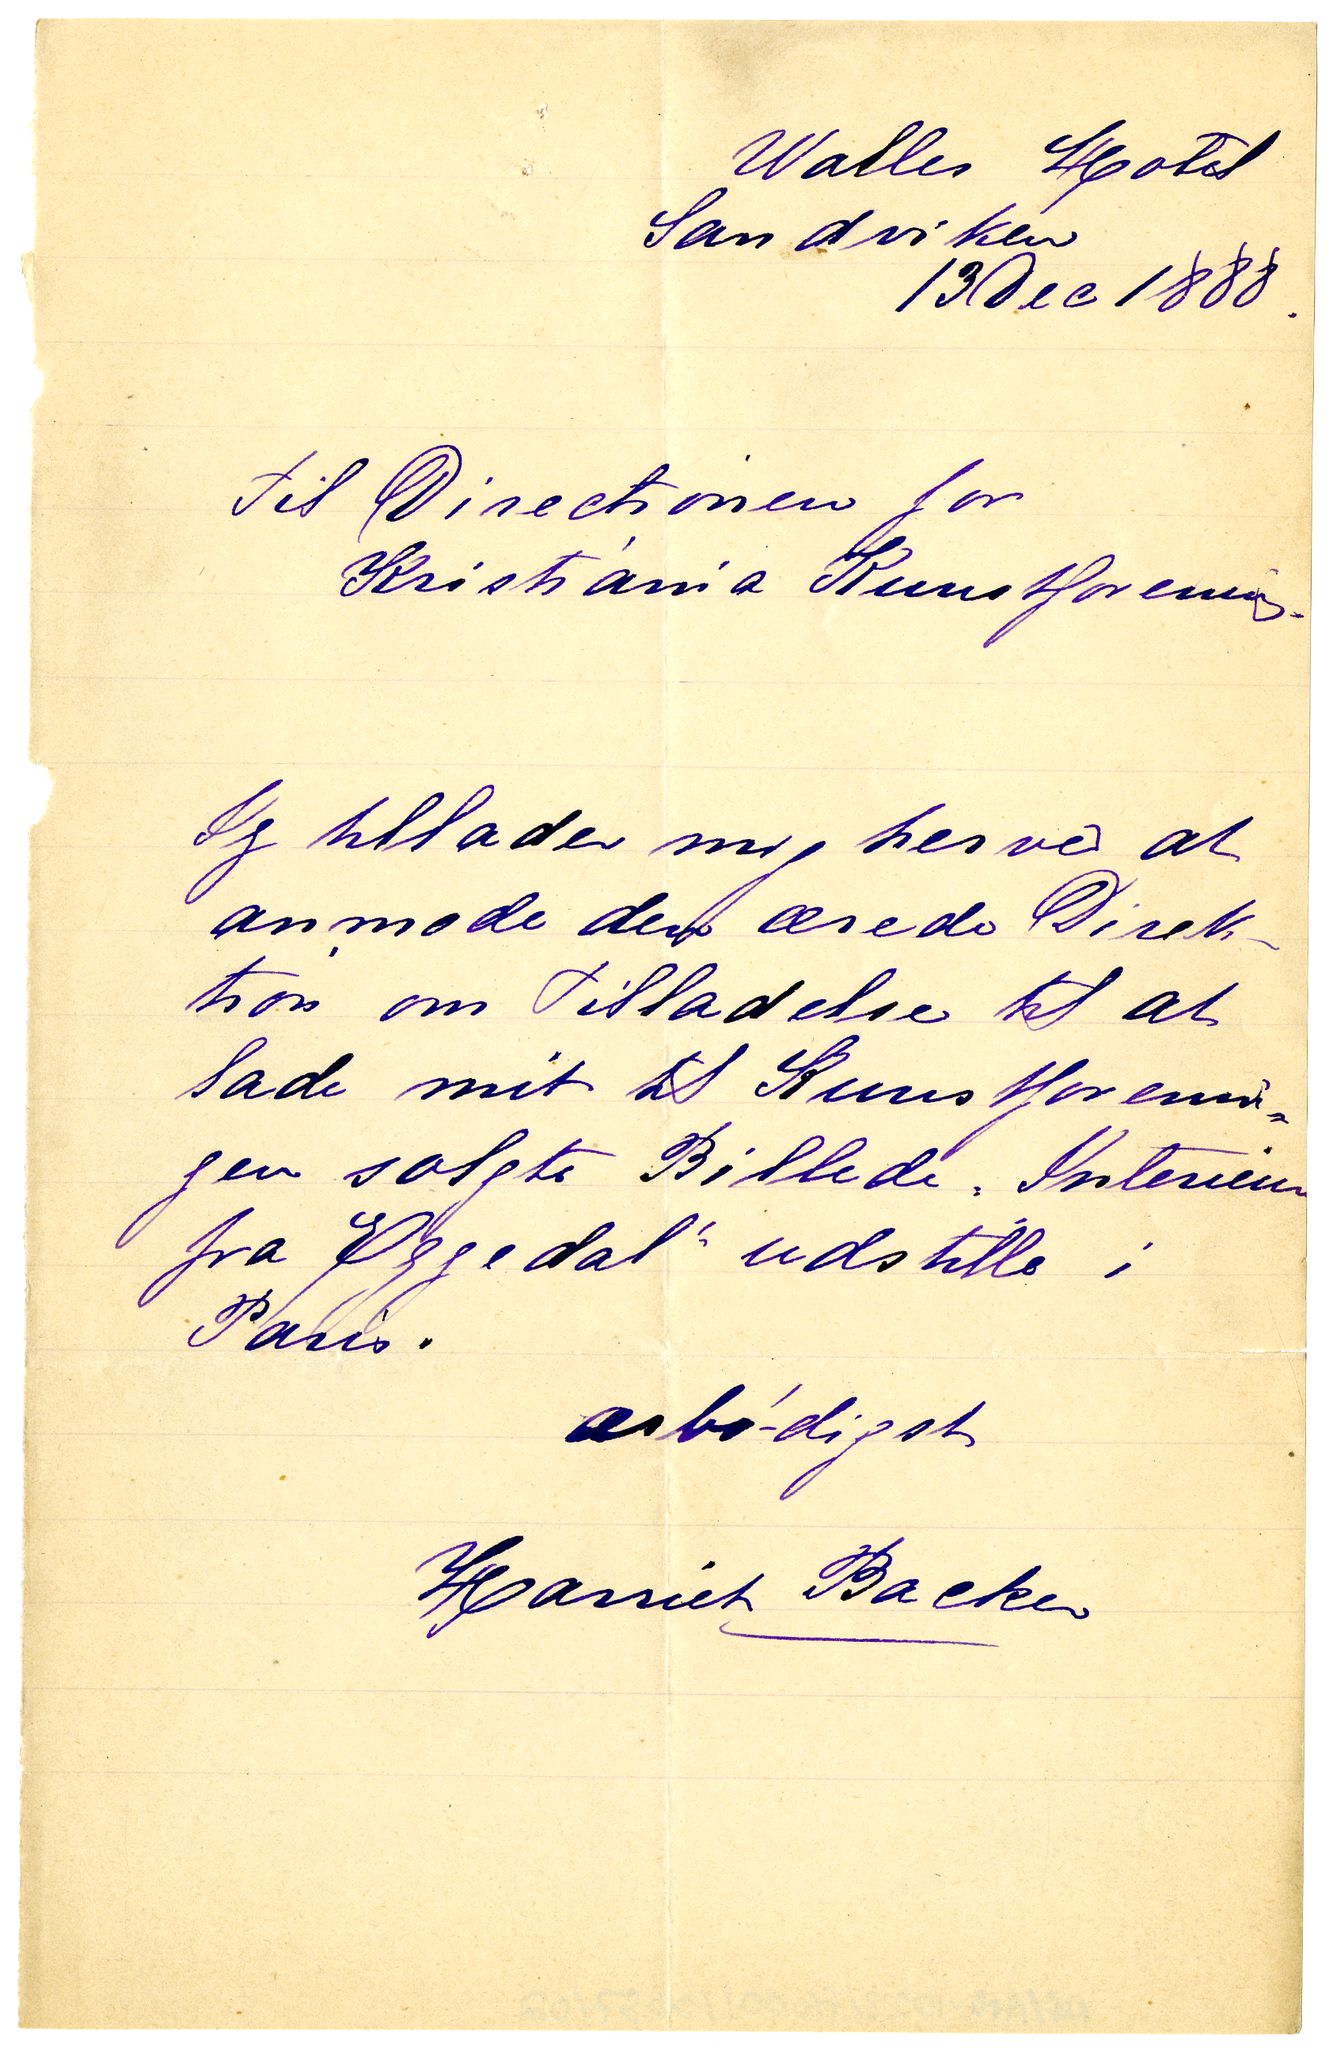 Walles Hotel
Sandviken
13 Dec 1888.
Til Directionen for
Kristiania Kunstforening.
Jeg tillader mig herved at
anmode den ærede Direk-
tion om Tilladelse til at
lade mit til Kunstforenin-
gen solgte Billede „Interieur
fra Eggedal“ udstille i
Paris.
ærbödigst
Harriet Backer